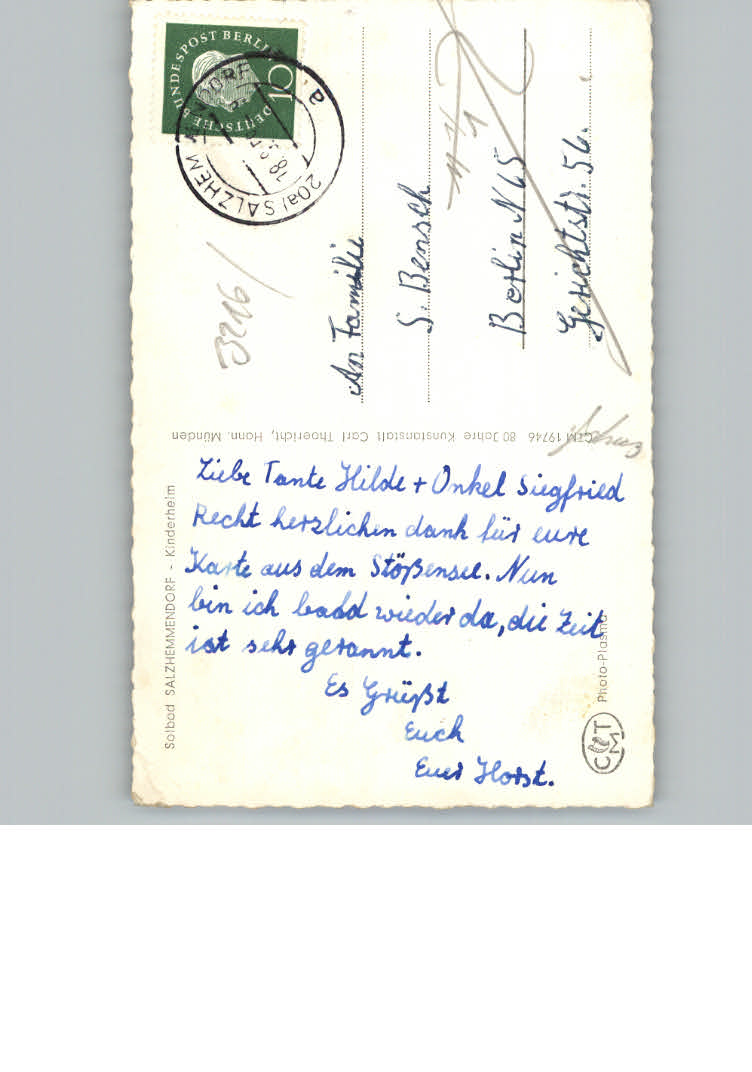 Liebe Tante Hilde + Onkel Siegfried
Recht herzlichen dank für eure
Karte aus dem Stößensee. Nun
bin ich badd wieder da, die Zeit
ist sehr gerannt.
Es Grüßt
Euch
Euer Horst.
An Familie
S. Bensch
Berlin N 65
Gerichtstr. 56.
3216
DEUTSCHE BUNDESPOST BERLIN
10
20a/SALZHEMMENDORF
a
Solbad SALZHEMMENDORF - Kinderheim
CTM 19746 80 Jahre Kunstanstalt Carl Thoericht, Hann. Münden
CTM
Photo-Plasma